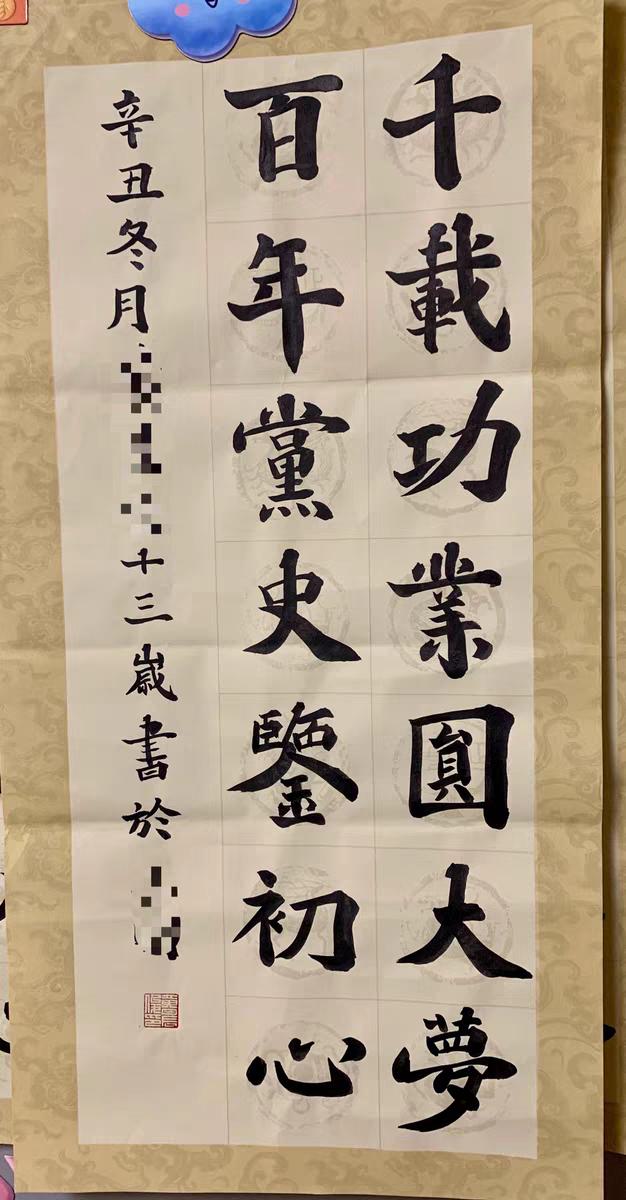 千載功業圓大夢
百年黨史鑒初心
辛丑冬月
十三歲書於